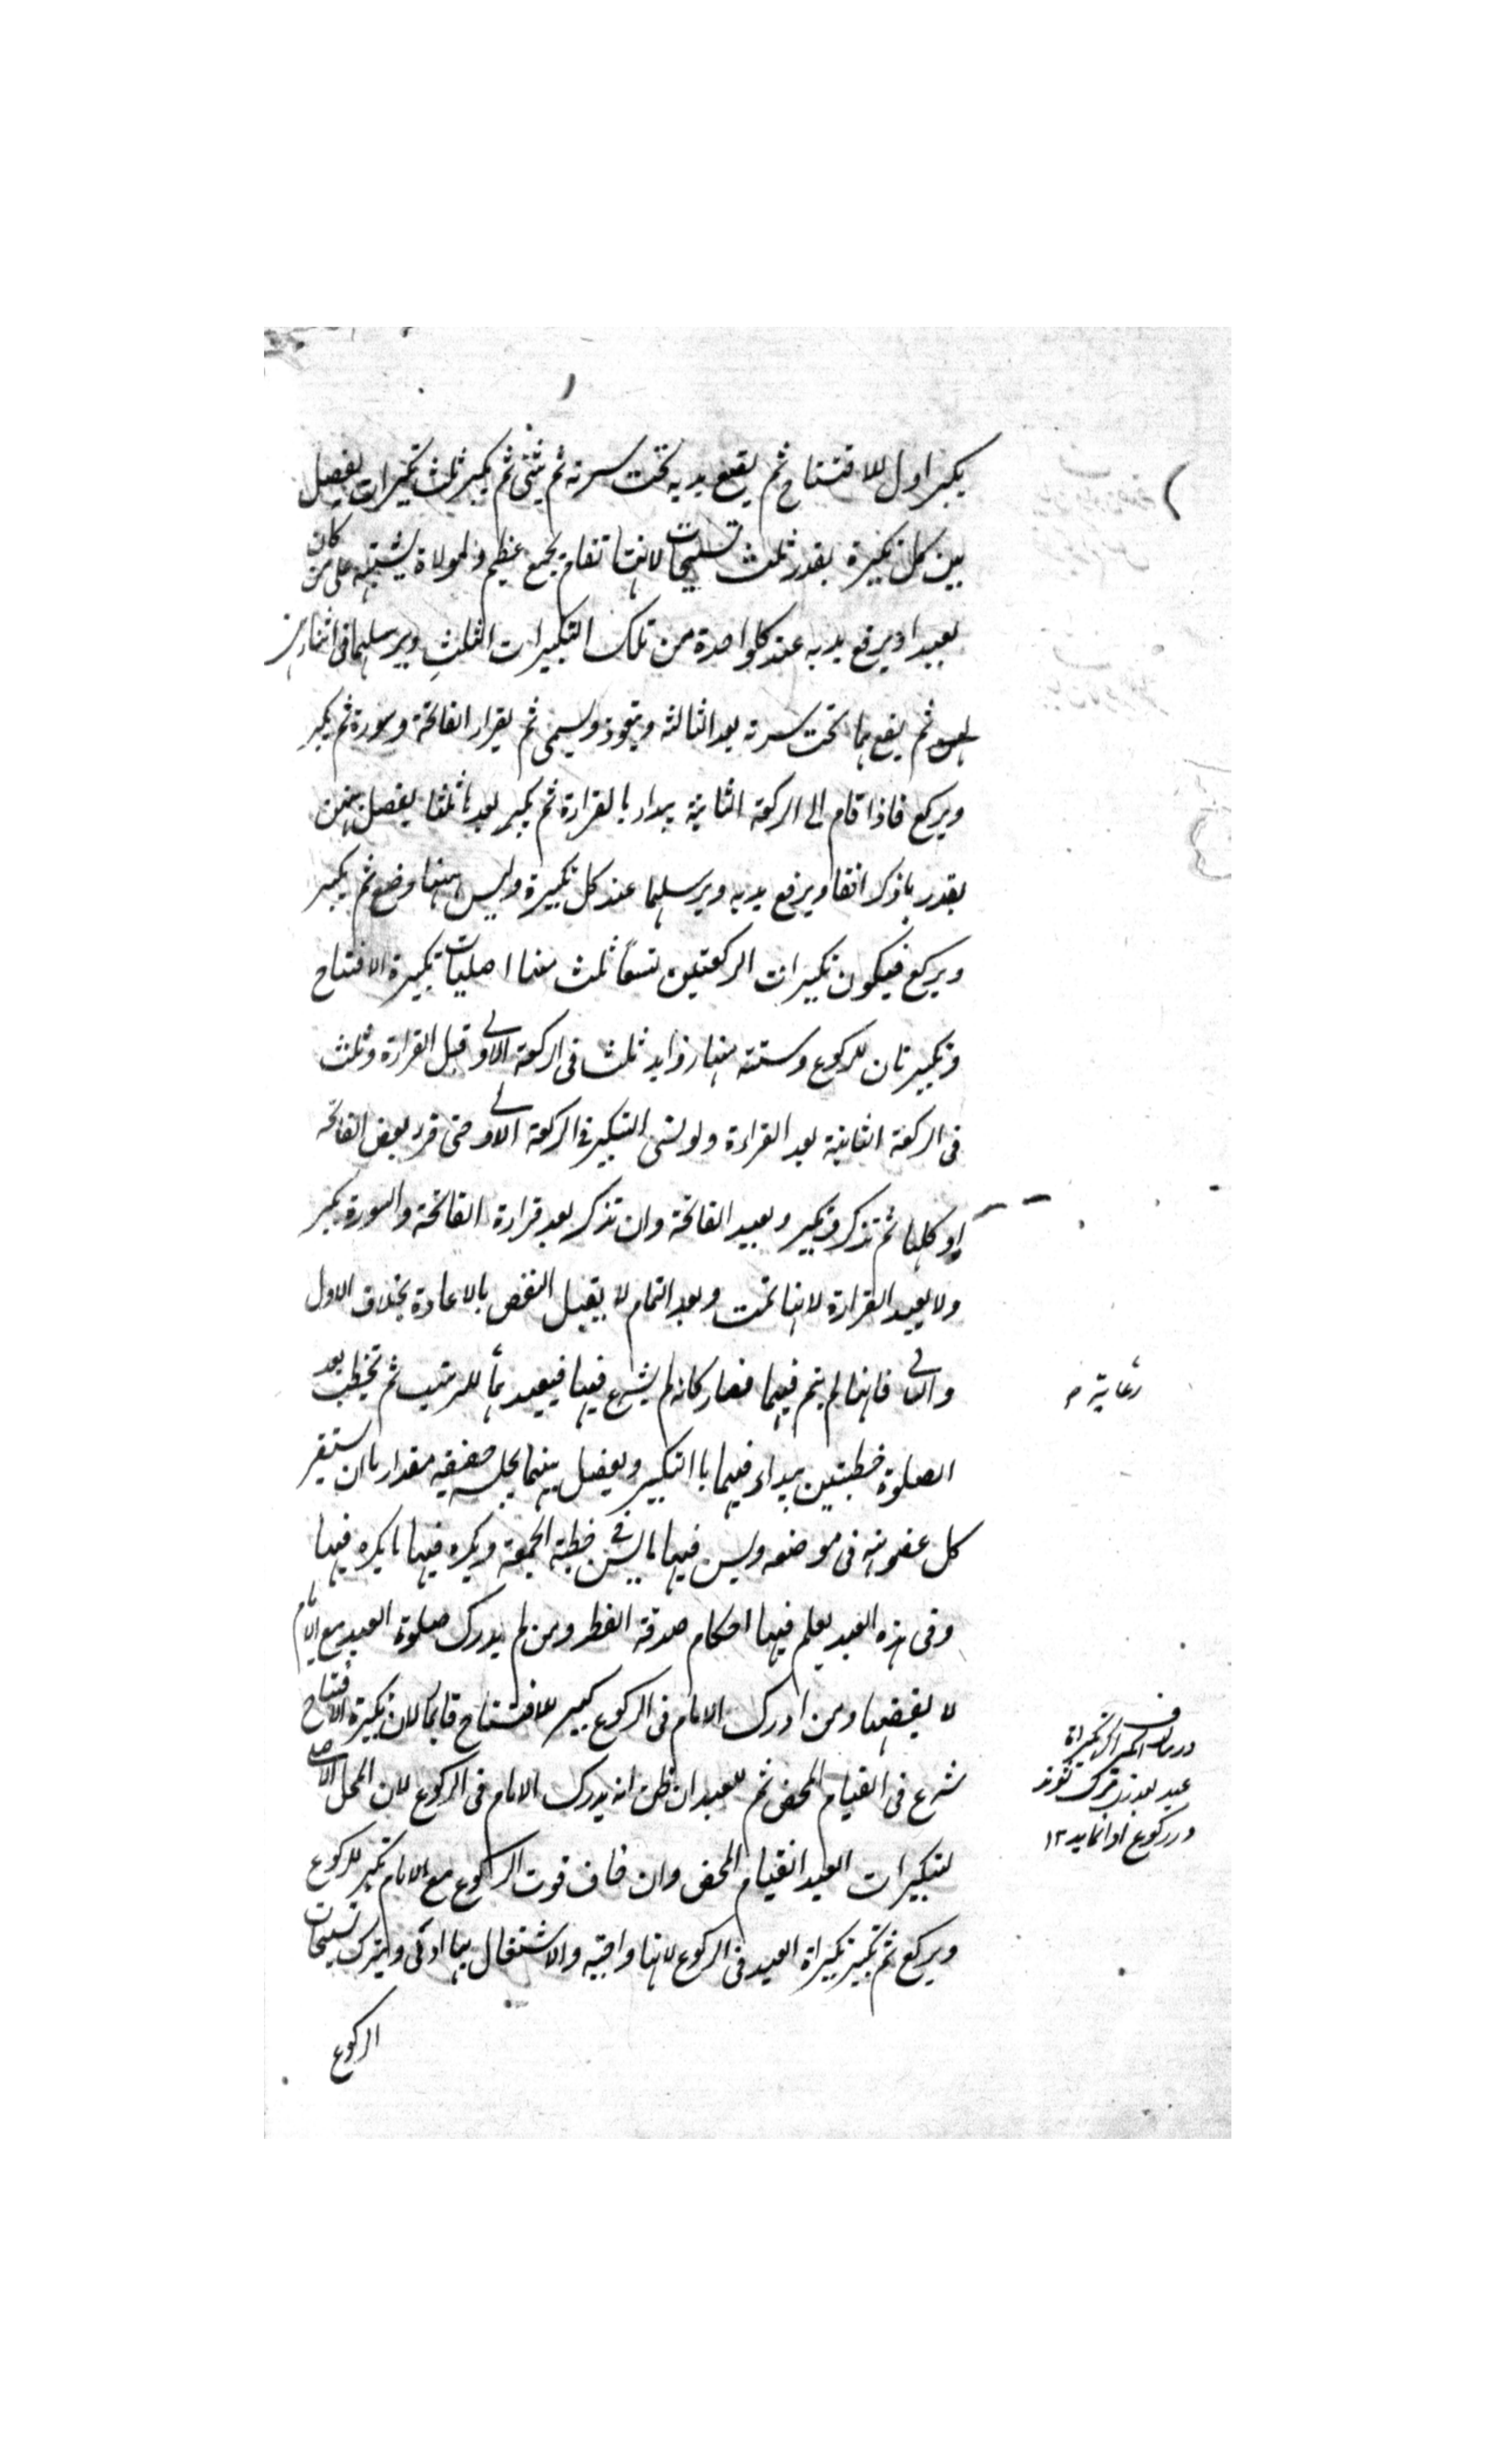 يكبر اول للافتتاح ثم يضع يديه تحت سرته ثم يثنى ثم يكبر ثلث تكبيرات يفصل
بين كل تكبيرة بقدر ثلث تسبيحات لانها تقام بجمع عظيم والمولاة يشتبه على من كان
بعيدا ويرفع يديه عند كل واحدة من تلك التكبيرات الثلث ويرسلهما فى اثنائهن
ثم يضعهما تحت سرته بعد الثالثة ويتعوذ ويسمى ثم يقراء الفاتحة وسورة ثم يكبر
ويركع فاذا قام الى الركعة الثانية يبداء بالقراءة ثم يكبر بعدها ثلثا يفصل بينهن
بقدر ما ذكر انفا ويرفع يديه ويرسلهما عند كل تكبيرة وليس ههنا وضع ثم يكبر
ويركع فيكون تكبيرات الركعتين تسعًا ثلث منها اصليات تكبيرة الافتتاح
وتكبيرتان للركوع وستة منها زوايد ثلث فى الركعة الاولى قبل القراءة وثلث
فى الركعة الثانية بعد القراءة ولو نسى التكبير فى الركعة الاولى حتى قرء بعض الفاتحة
او كلها ثم تذكر يكبر ويعيد الفاتحة وان تذكر بعد قراءة الفاتحة والسورة يكبر
ولا يعيد القراءة لانها تمت وبعد التمام لا يقبل النقض بالاعادة بخلاف الاول
والثانى فانها لم يتم فيهما فصار كانه لم يشرع فيها فيعيدها للترتيب ثم يخطب بعد
رعاية م
الصلوة خطبتين يبداء فيهما باالتكبير ويفصل بينهما بجلسة خفيفه مقدار ما ان يستقر
كل عضو منه فى موضعه ويسن فيها ما يسن فى خطبة الجمعة ويكره فيها ما يكره فيها
وفى هذه العيد يعلم فيها احكام صدقة الفطر ومن لم يدرك صلوة العيد مع الامام
لا يقضيها ومن ادرك الامام فى الركوع يكبر للافتتاح قايما لان تكبيرة الافتتاح
شرع فى القيام المحض ثم للعيد ان ظن انه يدرك الامام فى الركوع لان المحل الاصلى
عيد بعذر ترك شوند
در ركوع ادا نمايد ١٢
لتكبيرات العيد القيام المحض وان خاف فوت الركوع مع الامام يكبر للركوع
ويركع ثم يكبر تكبيراة العيد فى الركوع لانها واجبه والاشتغال بها اولى ويترك تسبيحات
الركوع